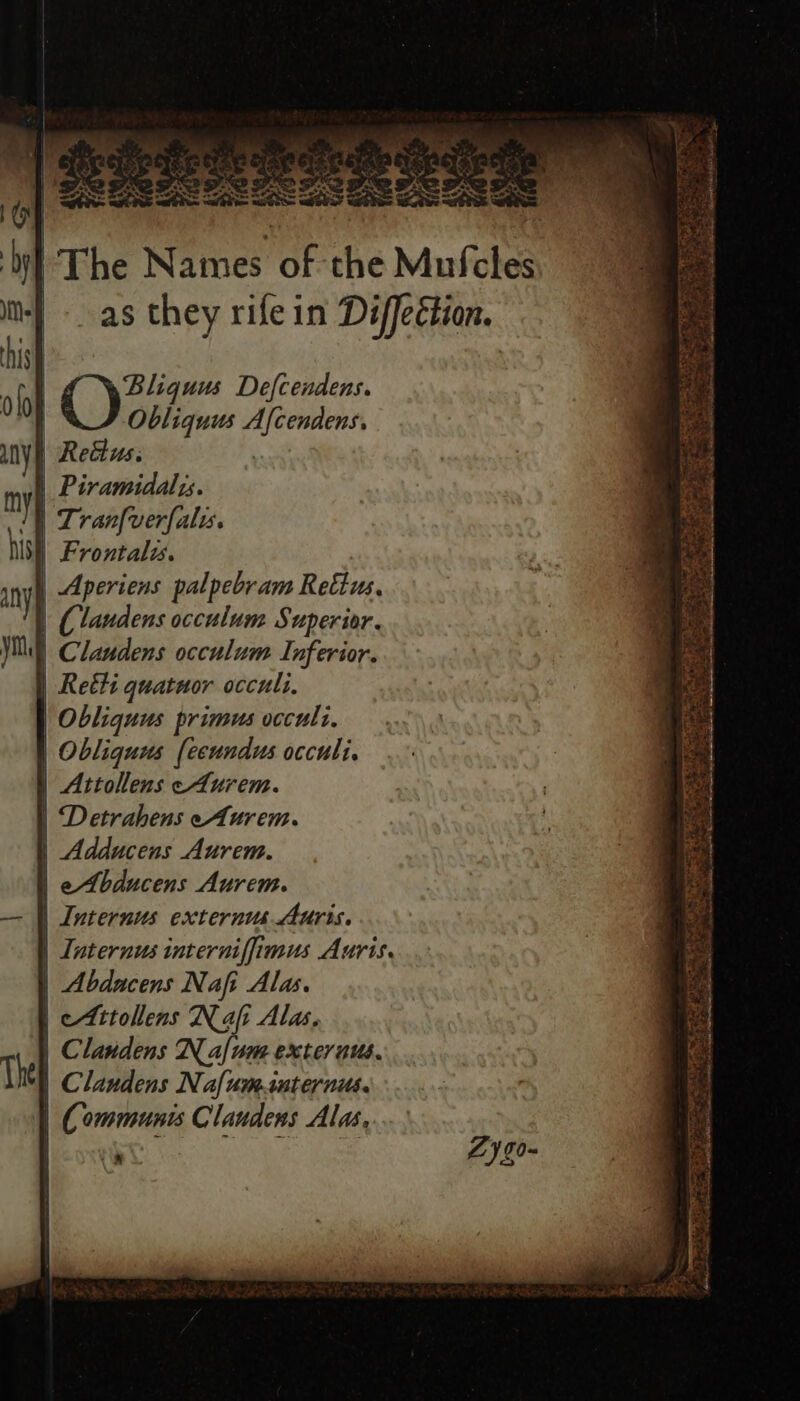 The Names of the Muſcles
as they riſe in Diſſection.
OBliquus Deſcendens.
Obliquus Aſcendens.
Rectus.
Piramidalis.
Tranſverſalis.
Frontalis.
Aperiens palpebram Rectus.
Claudens occulum Superior.
Claudens occulum Inferior.
Recti quatuor occuli.
Obliquus primus occuli.
Obliquus ſecundus occuli.
Attollens Aurem.
Detrahens Aurem.
Adducens Aurem.
Abducens Aurem.
Internus externus Auris.
Internus interniſſimus Auris.
Abducens Naſi Alas.
Attollens Naſi Alas.
Claudens Naſum externus.
Claudens Naſum internus.
Communis Claudens Alas.
Zygo-